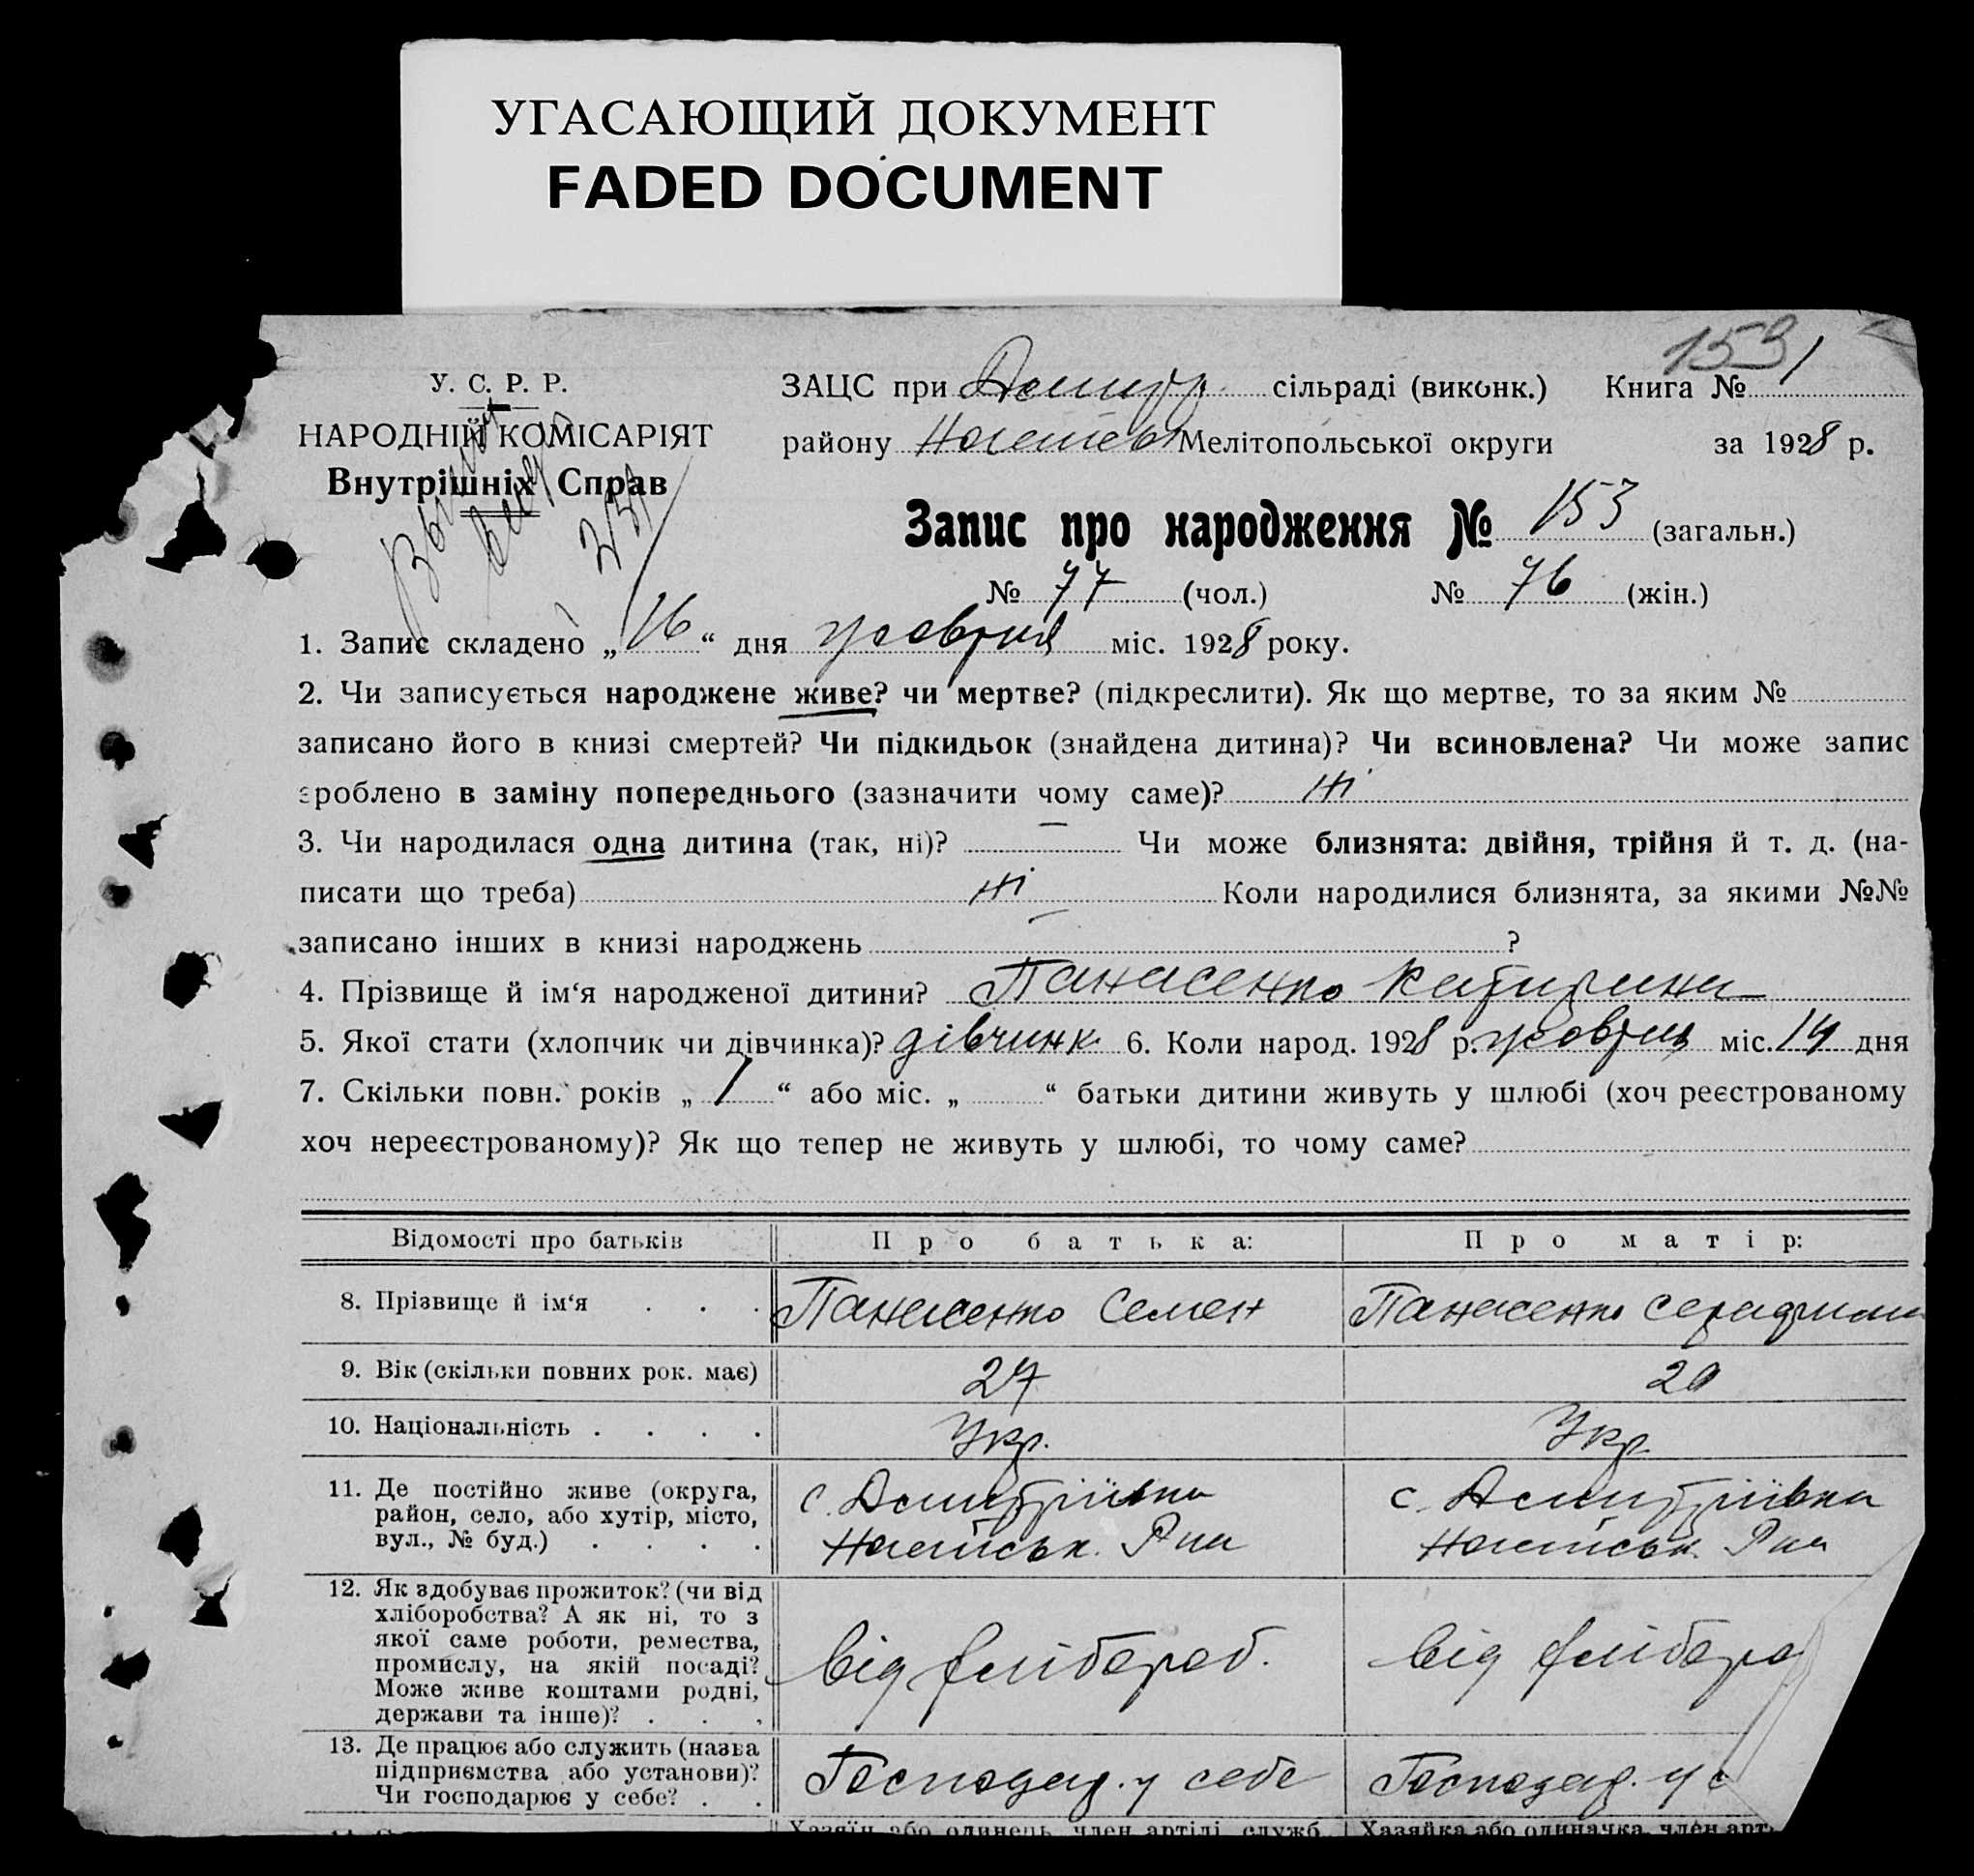 УГАСАЮЩИЙ ДОКУМЕНТ
FADED DOCUMENT
153
У. С. Р. Р.
НАРОДНІЙ КОМІСАРІЯТ
Внутрішніх Справ
ЗАЦС при Дмитр. сільраді (виконк.) Книга № 1
району Мелітопольської округи за 1928 р.
Запис про народження № 153 (загальн.)
№ 77 (чол.) № 76 (жін.)
1. Запис складено „16“ дня жовтня міс. 1928 року.
2. Чи записується народжене живе? чи мертве? (підкреслити). Як що мертве, то за яким №
записано його в книзі смертей? Чи підкидьок (знайдена дитина)? Чи всиновлена? Чи може запис
зроблено в заміну попереднього (зазначити чому саме)? Ні
3. Чи народилася одна дитина (так, ні)? — Чи може близнята: двійня, трійня й т. д. (на-
писати що треба) Ні Коли народилися близнята, за якими №№
записано інших в книзі народжень — ?
4. Прізвище й ім‘я народженої дитини? Панасенко Катирина
5. Якої стати (хлопчик чи дівчинка)? дівчинк. 6. Коли народ. 1928 р. жовтня міс. 14 дня
7. Скільки повн. років „1“ або міс. „ “ батьки дитини живуть у шлюбі (хоч реєстрованому
хоч нереєстрованому)? Як що тепер не живуть у шлюбі, то чому саме?
Відомості про батьків Про батька: Про матір:
8. Прізвище й ім‘я . . . Панасенко Семен Панасенко Серафима
9. Вік (скільки повних рок. має) 27 20
10. Національність . . . . Укр. Укр.
11. Де постійно живе (округа,
район, село, або хутір, місто,
вул., № буд.) . . . .
с. Дмитріївка
Р-на
с. Дмитріївка
Р-на
12. Як здобуває прожиток? (чи від
хліборобства? А як ні, то з
якої саме роботи, ремества,
промислу, на якій посаді?
Може живе коштами родні,
держави та інше)? . . .
від хлібороб.
від хлібороб
13. Де працює або служить (назва
підприємства або установи)?
Чи господарює у себе? . .
Господар. у себе
Господар. у с
Хазяїн або одинець, член артілі, служб. Хазяйка або одиначка, член арт.